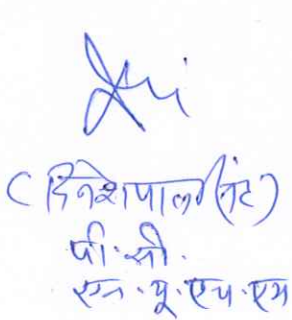 (दिनेशपाल नट)
पी.सी.
एन.यू.एच.एम